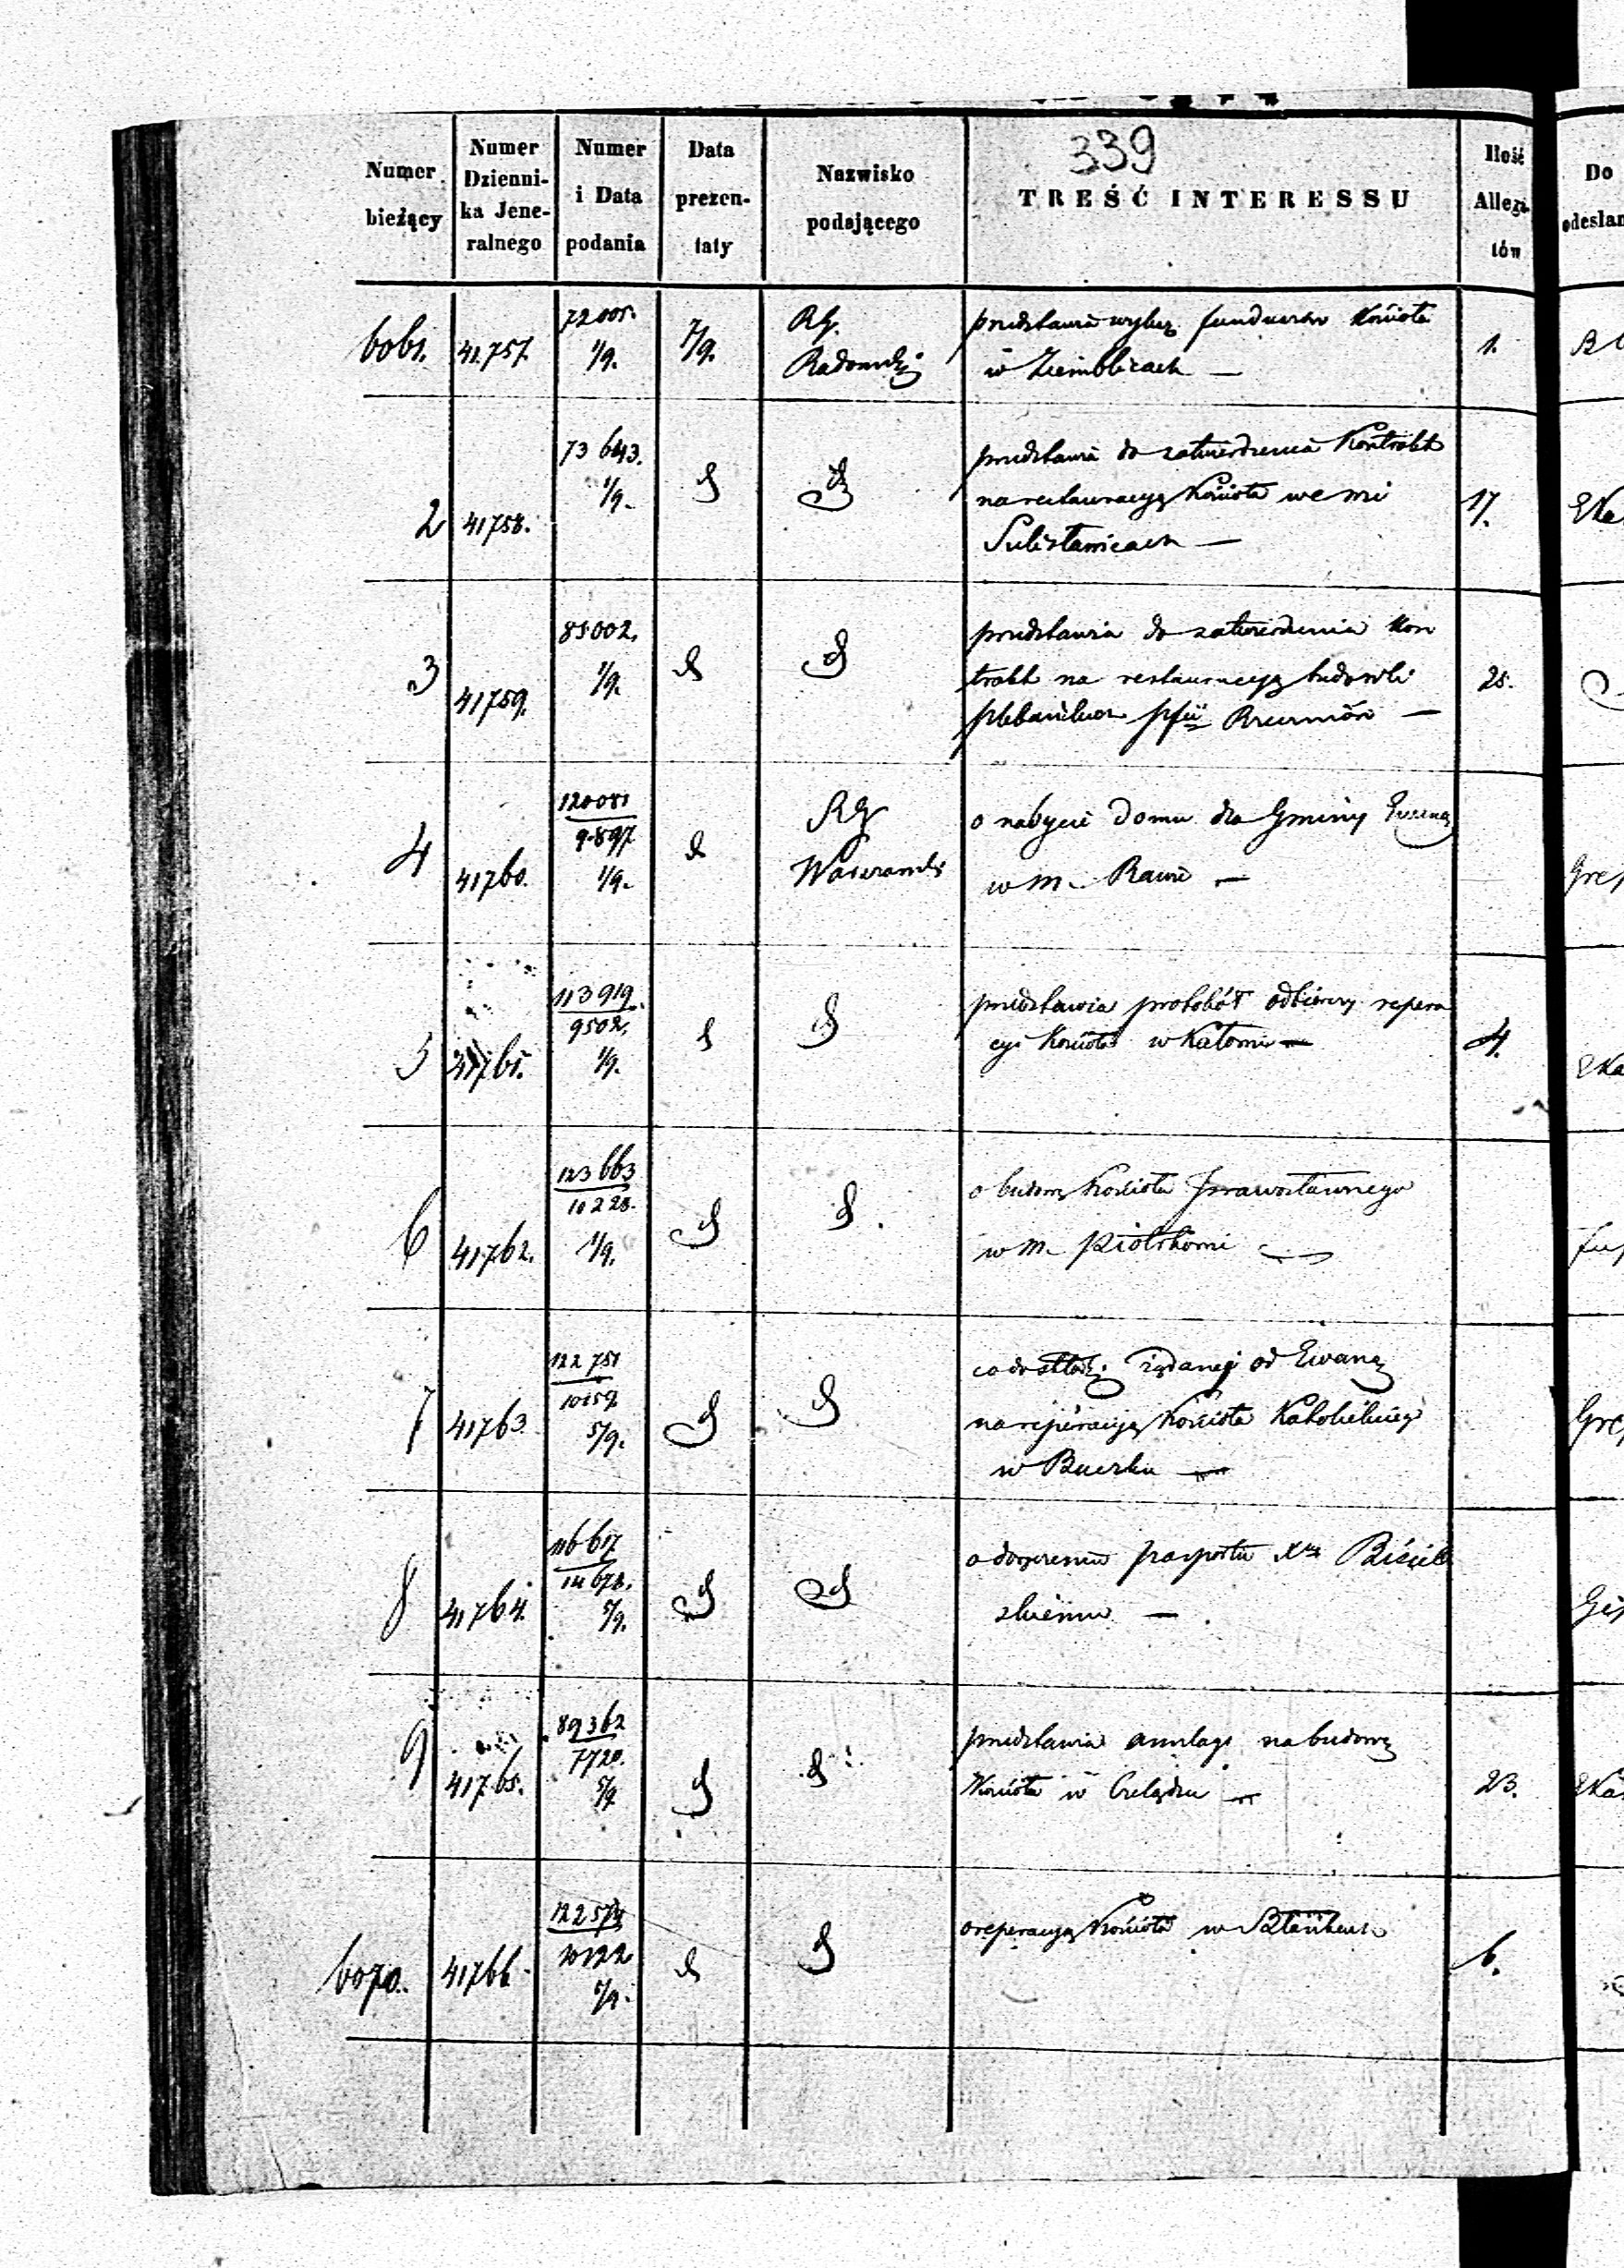 339
Numer bieżący
Numer Dzienni- ka Jene- ralnego
Numer i Data podania
Data prezen- taty
Nazwisko podającego
TREŚĆ INTERESSU
Ilość Allega tów
Do odesłan
6061. 41757. 72005. 1/9. 7/9. RG. Radomski
przedstawia wykaz funduszów Kościoła
w Ziemblicach — 1.
2 41758. 73643. 1/9. 17.
przedstawia do zatwierdzenia Kontrakt
na restauracyą Kościoła we wsi
Sulisławicach —
3 41759. 85002. 1/9. 25.
przedstawia do zatwierdzenia Kon
trakt na restauracyą budowli
plebańskich pfii —
4 41760. 120081 9897 1/9. RG Warszawski
o nabycie Domu dla Gminy Ewang
w m. Rawie —
5 113919. 9502. 1/9. 4.
przedstawia protokół odbiorczy repera
cyi Kościoła w —
6 41762. 123663 10228. 1/9.
o budowę Kościoła Prawosławnego
w m. Piotrkowie —
7 41763 122751 10159 5/9.
co do składki żądanej od Ewang
na reperacyą Kościoła Katolickiego
w Buczku —
8 41764. 116617 14678. 5/9.
o doręczeniu pasportu Xs
skiemu —
9 41765. 89362 7720. 5/9 23.
przedstawia anszlagi na budowę
Kościoła w —
6070. 41766 10122 5/9. 6.
o reperacyą Kościoła w